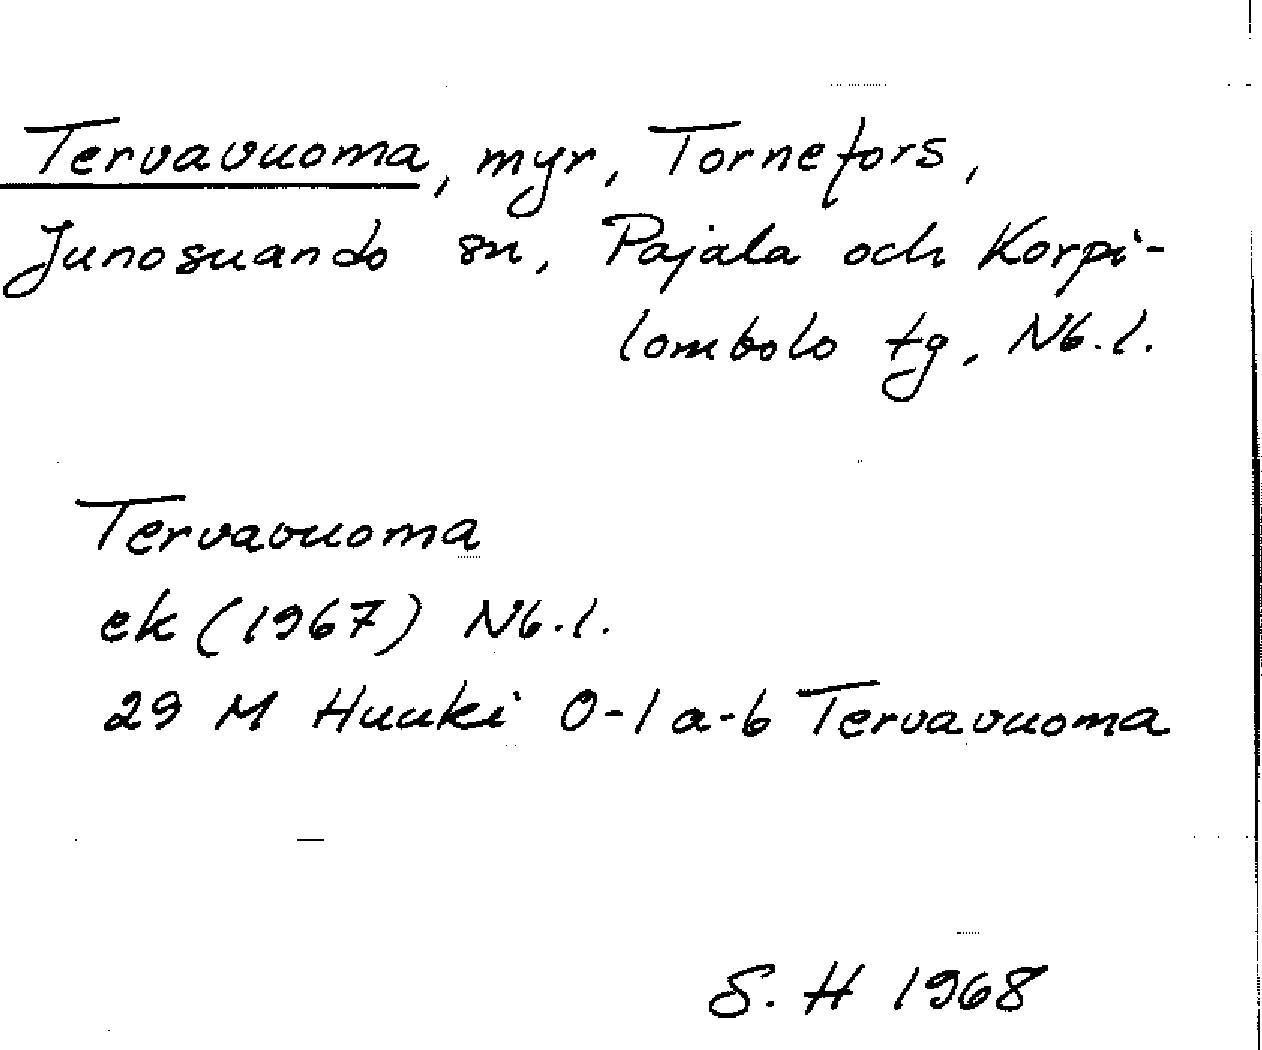 Tervavuoma, myr, Tornefors,
Junosuando sn, Pajala och Korpi-
lombolo tg, Nb.l.
Tervavuoma
ek (1967) Nb.l.
29 M Huuki 0-1 a-b Tervavuoma
S. H 1968